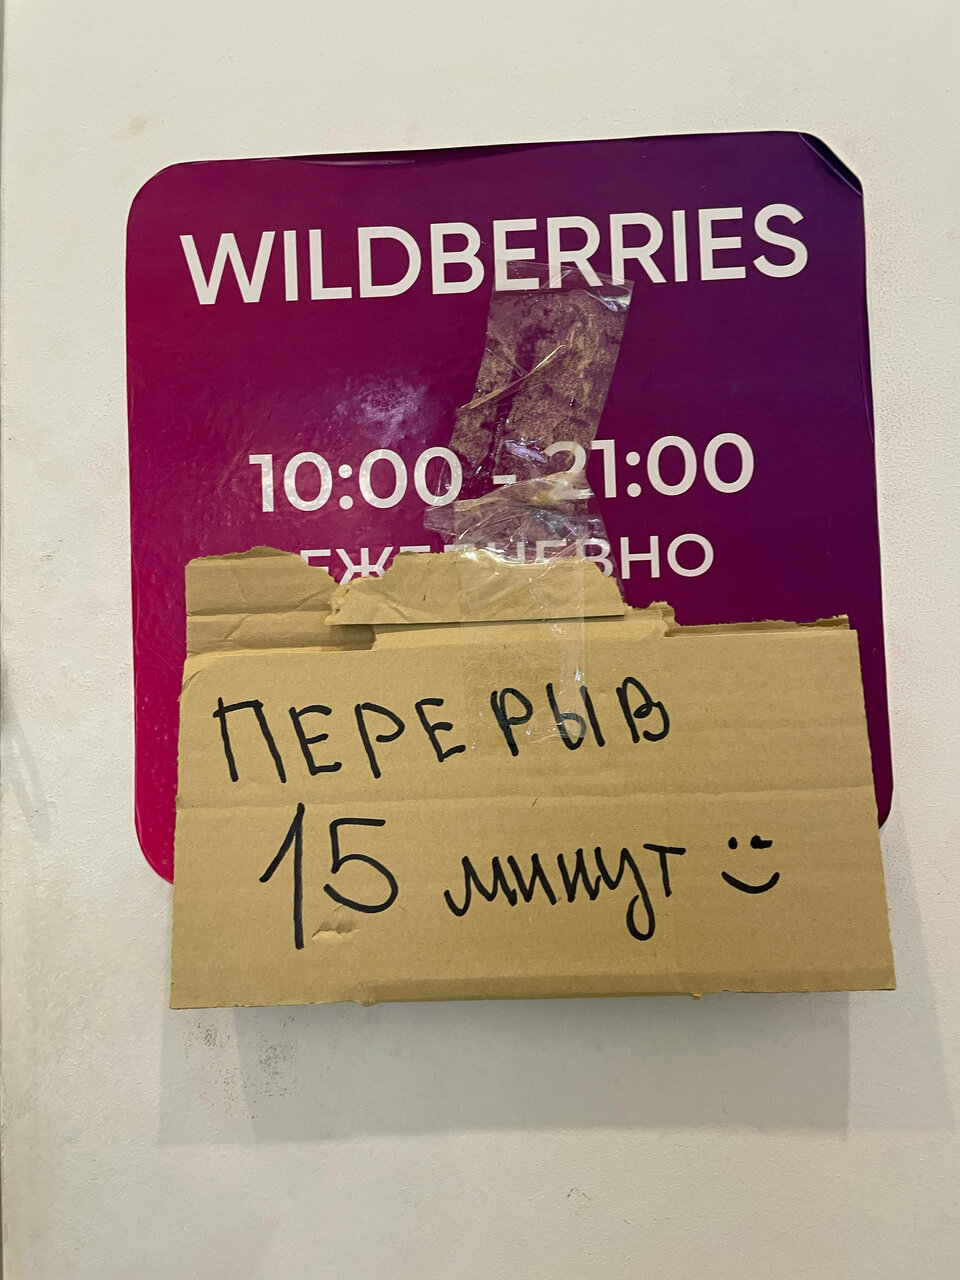 WILDBERRIES
10:00 - 21:00
ЕЖЕДНЕВНО
ПЕРЕРЫВ
15 минут